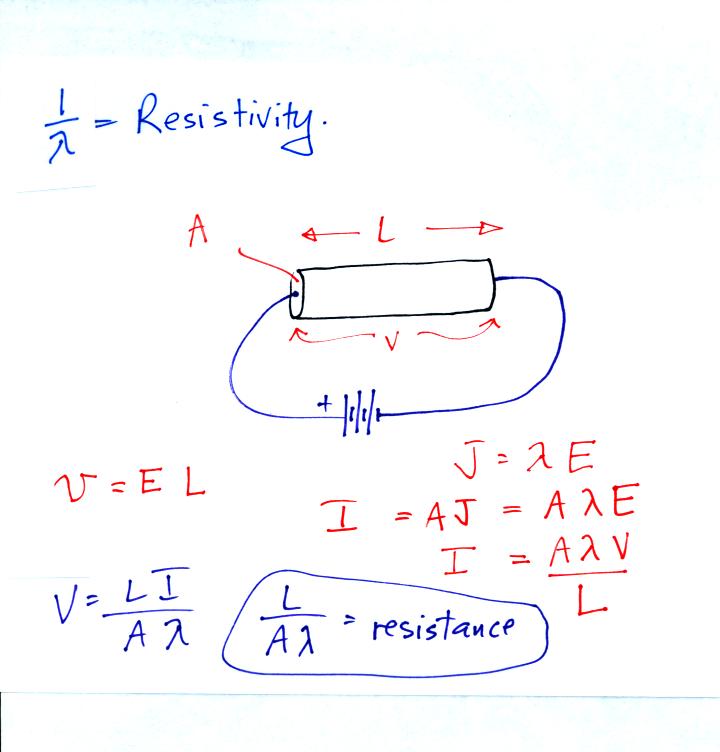 1/λ = Resistivity.
A
← L →
V
+
V = E L
J = λ E
I = AJ = A λ E
I = AλV/L
V = L I/A λ
L/Aλ = resistance